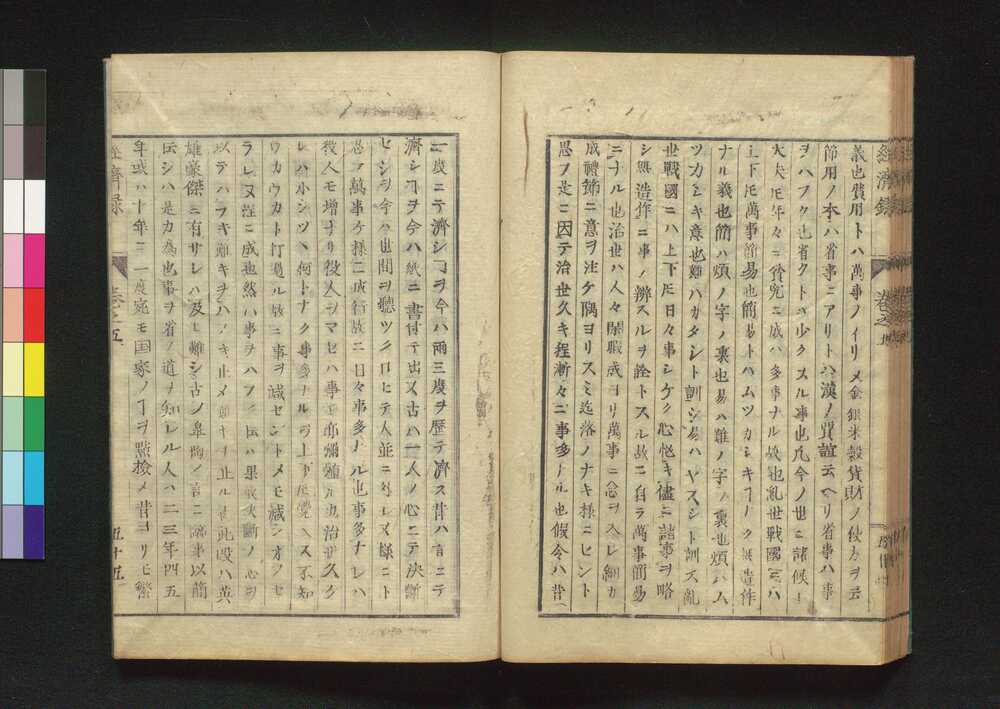 義也費用トハ萬事ノイリメ金銀米穀貨財ノ使方ヲ云
節用ノ本ハ省事ニアリトハ漢ノ賈誼云ヘリ省事ハ事
ヲハフク也省クトハ少クスル事也凡今ノ世ニ諸侯
大夫年々ニ貧究ニ成ハ多事ナル故也亂世戰國ニハ
上下萬事簡易也簡易トハムツカシキナク無造作
ナル義也簡ハ煩ノ字ノ裏也易ハ難ノ字ノ裏也煩ハム
ツカシキ意也難ハカタシト訓シ易ハヤスシト訓ス亂
世戰國ニハ上下日々事シケク心忙キ儘ニ諸事ヲ略
シ無造作ニ事ノ辨スルヲ詮トスル故ニ自ラ萬事簡易
ニナル也治世ハ人々閑暇成ヨリ萬事ニ念ヲ入レ細カ
成禮節ニ意ヲ注ケ隅ヨリスミ迄落ノナキ様ニヒント
思フ是ニ因テ治世久キ程漸々ニ事多ナル也假令ハ昔
一度ニテ濟シヲ今ハ兩三度ヲ歴テ濟ス昔ハ言ニテ
濟シヲ今ハ紙ニ書付テ出又古ハ一人ノ心ニテ決斷
セシヲ今ハ世間ヲ聽ツクロヒテ人並ニ又様ニト
思フ萬事ケ様ニ成行故ニ日々事多ナル也事多ナレハ
役人モ增ナリ役人ヲマセハ事モ亦彌殖ル也治世久ク
レハ小シツヽ何トナク事多ナルヲ上下覺ヘス不知
ウカウカト打過ル故ニ事ヲ減セントメモ減シオフセ
ラレヌ程ニ成也然ハ事ヲハフクハ果敢决斷ノ心ヲ
以テハフキ難キヲハフキ止メ難キヲ止ル也此段ハ英
雄豪傑ニ有サレハ及ヒ難シ古ノ皐陶ノ言ニ臨下以簡
伝シハ是カ為也事ヲ省ノ道ヲ知レル人ハ二三年四五
年或ハ十年ニ一度宛モ国家ノヲ點檢メ昔ヨリモ繁
經濟録
卷之五
五十五